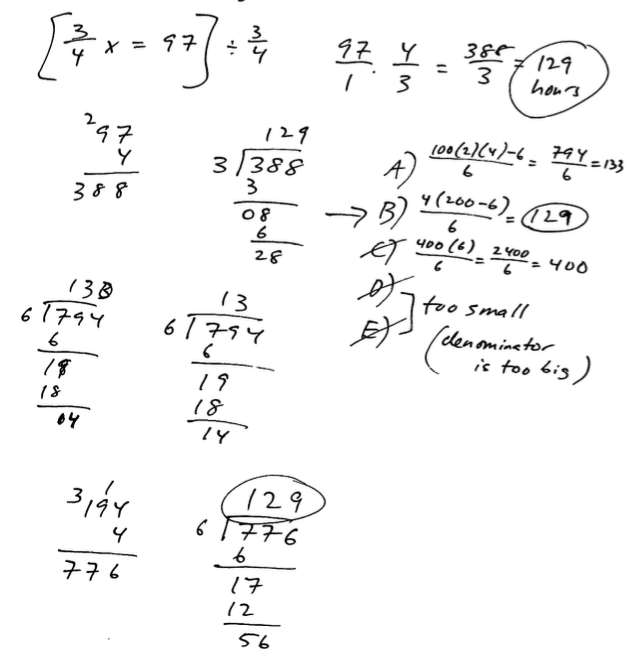 [3/4 x = 97] ÷ 3/4
97/1 · 4/3 = 388/3 = 129 hours
²97
4
388
129
3)388
3
08
6
28
A) 100(2)(4)-6/6 = 794/6 = 133
→ B) 4(200-6)/6 = 129
C) 400(6)/6 = 2400/6 = 400
D)
E)
] too small
(denominator
is too big)
13
6)794
6
19
18
04
13
6)794
6
19
18
14
3 1
194
4
776
129
6)776
6
17
12
56